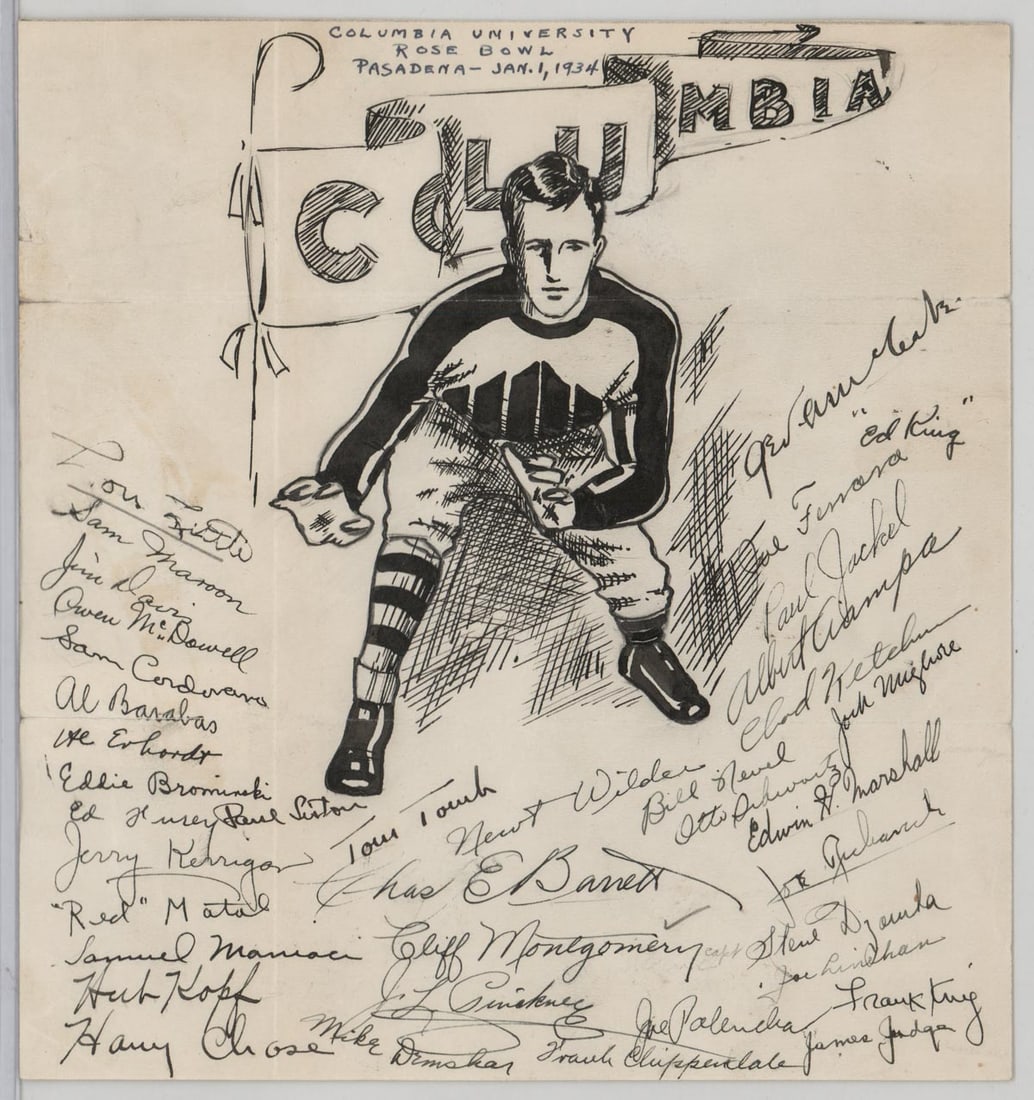 COLUMBIA UNIVERSITY
ROSE BOWL
PASADENA - JAN. 1, 1934
COLUMBIA
Lou Little
Sam Maroon
Jim Davis
Owen McDowell
Sam Cordovano
Al Barabas
Eddie Brominski
Ed Furey Paul Siston
Jerry Kerrigan
"Red" Matal
Samuel Maniaci
Hub Kopf
Harry Chase
Mike Demshar
Tom Tomb
Newt Wilder
Chas E Barrett
Cliff Montgomery capt
J. L. Pinckney
Frank Chippendale
"Ed King"
Joe Ferrara
Paul Jackel
Albert Ciampa
Chad Ketchum
Jack Migliore
Bill Nevel
Otto Schwartz
Edwin G. Marshall
Joe Richavich
Steve Dzamba
Joe Linehan
Joe Palencha
Frank King
James Judge